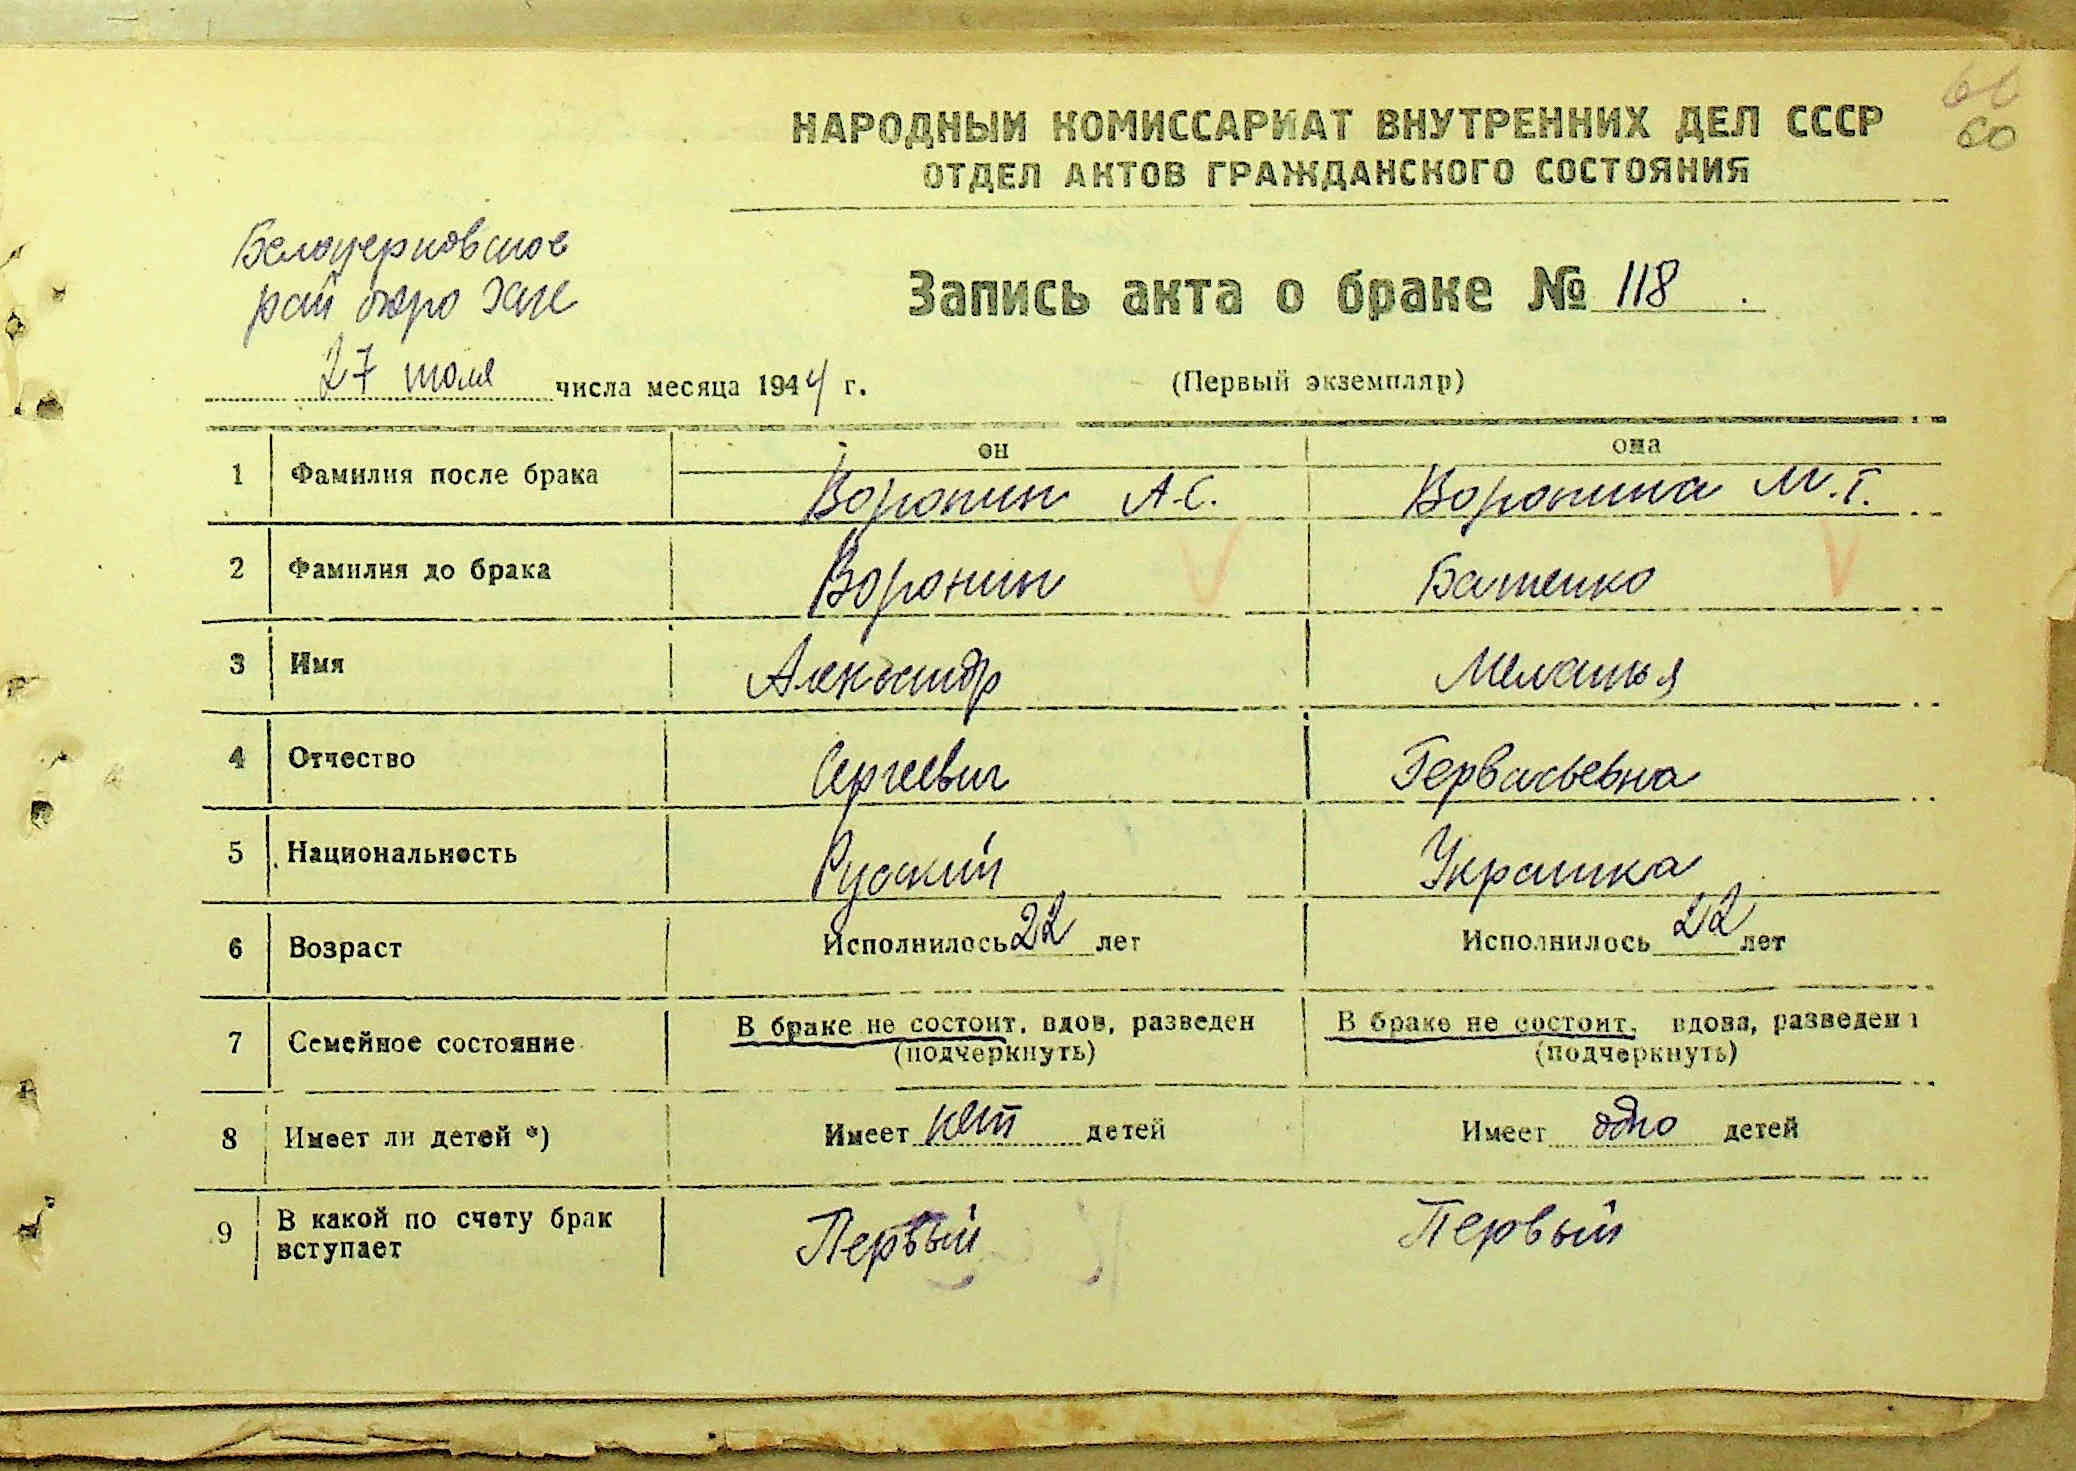 60
НАРОДНЫЙ КОМИССАРИАТ ВНУТРЕННИХ ДЕЛ СССР
ОТДЕЛ АКТОВ ГРАЖДАНСКОГО СОСТОЯНИЯ
Белоцерковское
рай бюро Загс
Запись акта о браке № 118
27 июля числа месяца 1944 г.
(Первый экземпляр)
он она
1 Фамилия после брака Воронин А.С. Воронина М.Г.
2 Фамилия до брака Воронин Батенко
3 Имя Александр Меланья
4 Отчество Сергеевич Гервасьевна
5 Национальность Русский Украинка
6 Возраст Исполнилось 22 лет Исполнилось 22 лет
7 Семейное состояние В браке не состоит, вдов, разведен (подчеркнуть) В браке не состоит, вдова, разведена (подчеркнуть)
8 Имеет ли детей *) Имеет нет детей Имеет одно детей
9 В какой по счету брак вступает Первый Первый